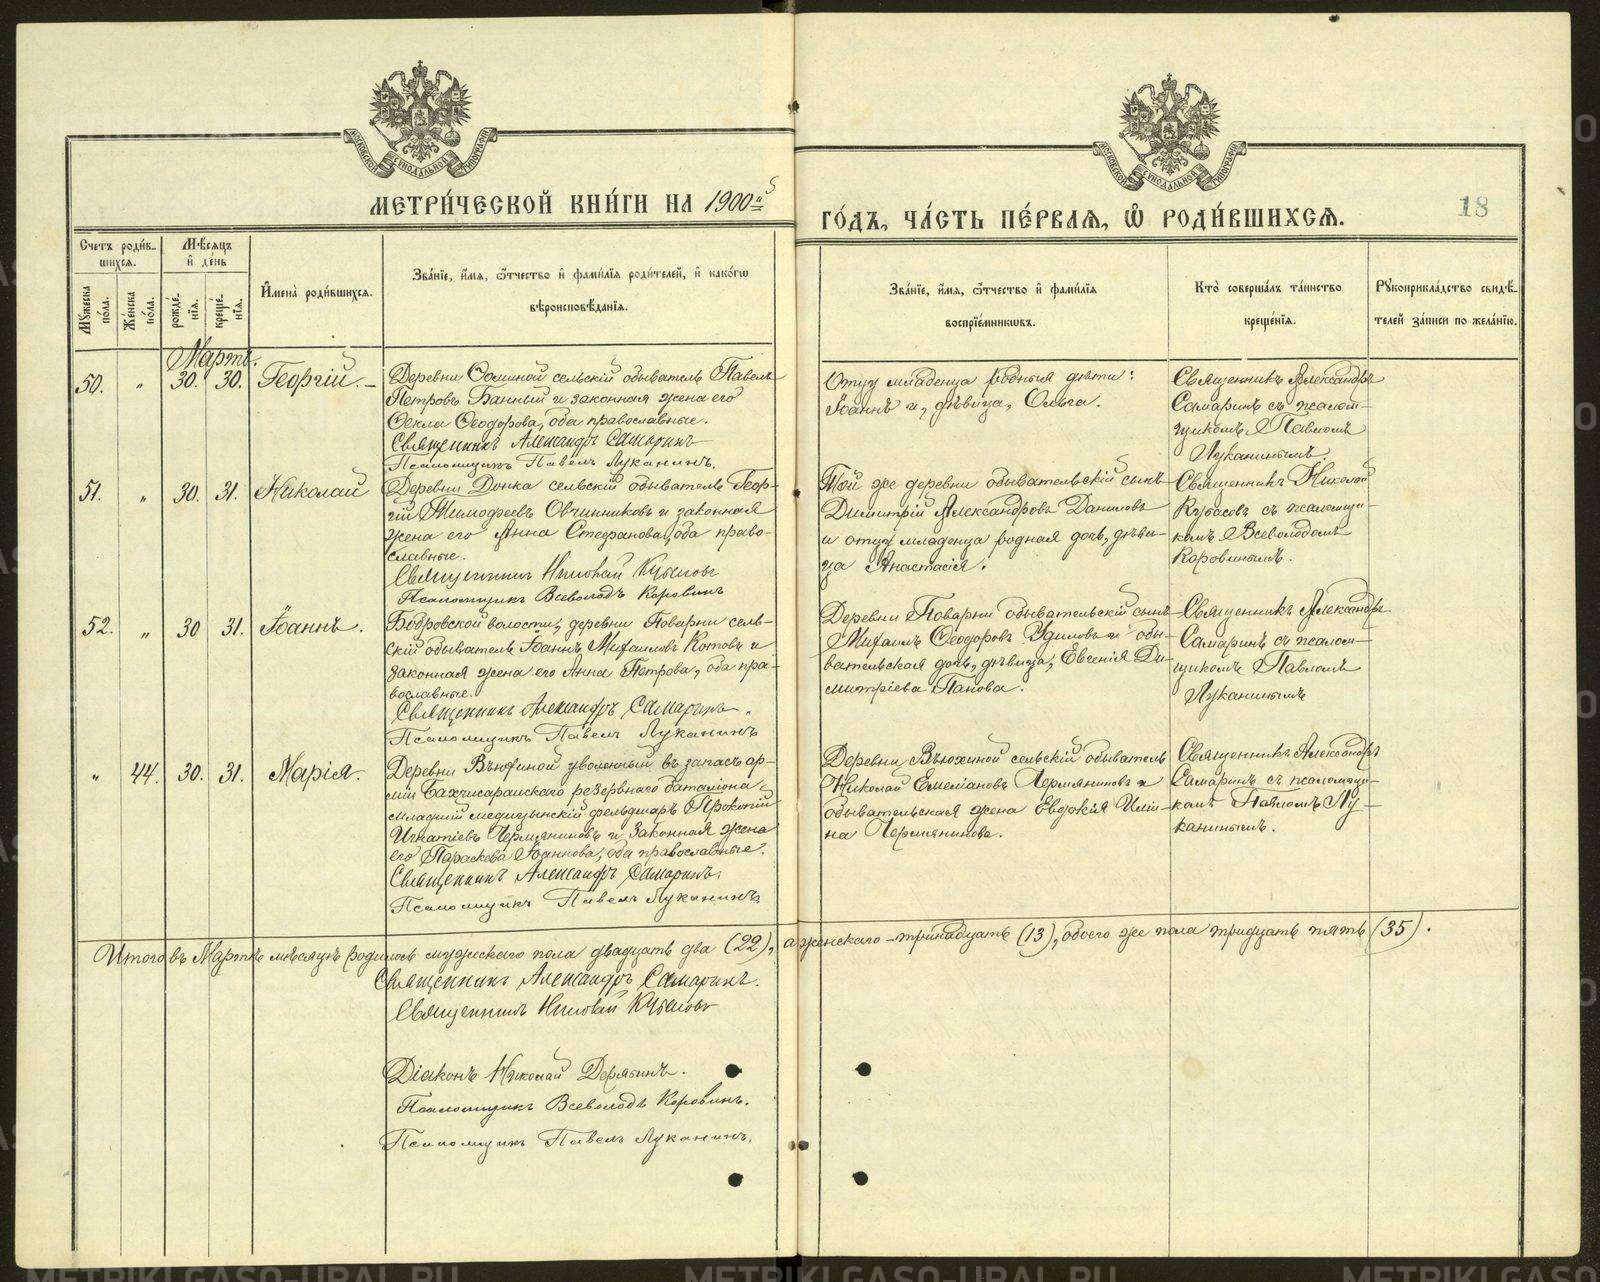 МЕТРИ́ЧЕСКОЙ КНИ́ГИ НА 1900й
ГО́ДЪ, ЧА́СТЬ ПЕ́РВАѦ, Ѡ҆ РОДИ́ВШИХСѦ.
18
Счетъ роди́в-
шихсѧ.
Мѣ́сѧцъ
и҆ де́нь
Мꙋ́жеска
по́ла.
Же́нска
по́ла.
рожде́-
нїѧ.
креще́-
нїѧ.
И҆мена̀ роди́вшихсѧ.
Зва́нїе, и҆́мѧ, ѻ҆́тчество и҆ фами́лїѧ роди́телей, и҆ како́гѡ
вѣроисповѣ́данїѧ.
Зва́нїе, и҆́мѧ, ѻ҆́тчество и҆ фами́лїѧ
воспрїе́мникѡвъ.
Кто̀ соверша́лъ та́инство
креще́нїѧ.
Рꙋкоприкла́дство свидѣ́-
телей за́писи по жела́нїю.
Мартъ.
50. " 30. 30. Георгій.
Деревни Ѳоминой сельскій обыватель Павелъ
Петровъ Банный и законная жена его
Ѳекла Ѳеодорова, оба православные.
Священникъ Александръ Самаринъ
Псаломщикъ Павелъ Луканинъ.
Отцу младенца родныя дѣти:
Іоаннъ и, дѣвица, Ольга.
Священникъ Александръ
Самаринъ съ псалом-
щикомъ Павломъ
Луканинымъ.
51. " 30. 31. Николай
Деревни Донка сельскій обыватель Геор-
гій Тимофеевъ Овчинниковъ и законная
жена его Анна Стефанова, оба право-
славные.
Священникъ Николай
Псаломщикъ Всеволодъ Коровинъ
Той же деревни обывательскій сынъ
Димитрій Александровъ Даниловъ
и отцу младенца родная дочь, дѣви-
ца Анастасія.
Священникъ Николай
съ псаломщи-
комъ Всеволодомъ
Коровинымъ.
52. " 30 31. Іоаннъ.
Бобровской волости, деревни Поварни сель-
скій обыватель Іоаннъ Михаиловъ Котовъ и
законная жена его Анна Петрова, оба пра-
вославные.
Священникъ Александръ Самаринъ.
Псаломщикъ Павелъ Луканинъ
Деревни Поварни обывательскій сынъ
Михаилъ Ѳеодоровъ Удиловъ и обы-
вательская дочь, дѣвица, Евгенія Ди-
митріева Панова.
Священникъ Александръ
Самаринъ съ псалом-
щикомъ Павломъ
Луканинымъ
" 44. 30. 31. Марія.
Деревни Вьюхиной уволенный въ запасъ ар-
міи Бахчисарайскаго резервнаго баталіона
младшій медицинскій фельдшеръ Прокопій
Игнатіевъ Чермяниновъ и законная жена
его Параскева Іоаннова, оба православные.
Священникъ Александръ Самаринъ.
Псаломщикъ Павелъ Луканинъ
Деревни Вьюхиной сельскій обыватель
Николай Емеліановъ Чермяниновъ и
обывательская жена Евдокія Иліи-
на Чермянинова.
Священникъ Александръ
Самаринъ съ псаломщи-
комъ Павломъ Лу-
канинымъ.
Итого въ Мартѣ мѣсяцѣ родилось мужескаго пола двадцать два (22), а женскаго - тринадцать (13), обоего же пола тридцать пять (35).
Священникъ Александръ Самаринъ.
Священникъ Николай
Діаконъ Николай Дерябинъ.
Псаломщикъ Всеволодъ Коровинъ.
Псаломщикъ Павелъ Луканинъ.
METRIKI.GASO-URAL.RU